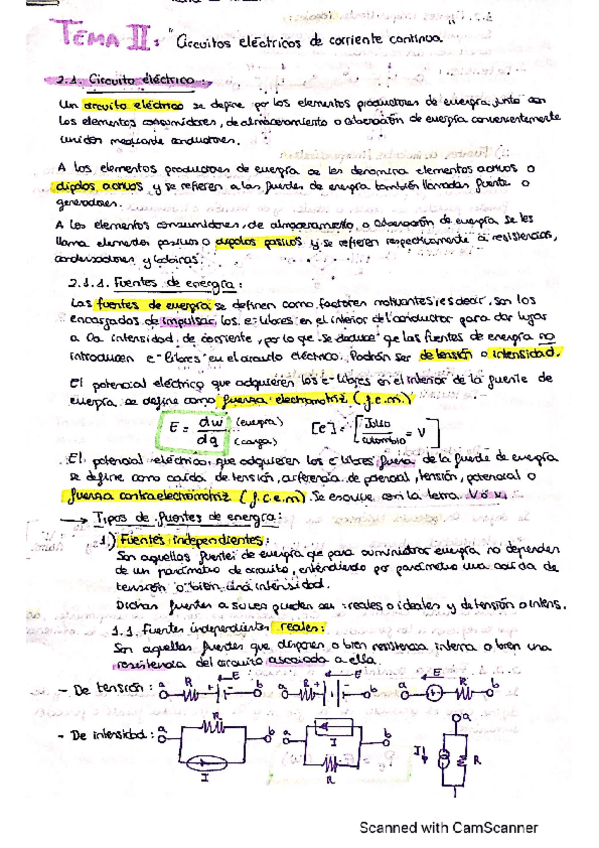 TEMA II: "Circuitos eléctricos de corriente continua.
2.1. Circuito eléctrico:
Un circuito eléctrico se define por los elementos productores de energía, junto con
los elementos consumidores, de almacenamiento o absorción de energía convenientemente
unidos mediante conductores.
A los elementos productores de energía se les denomina elementos activos o
dipolos activos y se refieren a las fuentes de energía también llamadas fuentes o
generadores.
A los elementos consumidores, de almacenamiento o absorción de energía se les
llama elementos pasivos o dipolos pasivos y se refieren respectivamente a resistencias,
condensadores y bobinas.
2.1.1. Fuentes de energía:
Las fuentes de energía se definen como factores motivantes, es decir, son los
encargados de impulsar los e- libres en el interior del conductor para dar lugar
a la intensidad de corriente, por lo que se deduce que las fuentes de energía no
introducen e- libres en el circuito eléctrico. Podrán ser de tensión o intensidad.
El potencial eléctrico que adquieren los e- libres en el interior de la fuente de
energía se define como fuerza electromotriz (f.e.m)
E = dw/dq (energía) (carga) [E] = [Julio/culombio = V]
El potencial eléctrico que adquieren los e- libres fuera de la fuente de energía
se define como caída de tensión, diferencia de potencial, tensión, potencial o
fuerza contraelectromotriz (f.c.e.m). Se escribe con la letra V o v.
→ Tipos de fuentes de energía:
1.) Fuentes independientes:
Son aquellas fuentes de energía que para suministrar energía no dependen
de un parámetro de circuito, entendiendo por parámetro una caída de
tensión o bien una intensidad.
Dichas fuentes a su vez pueden ser: reales o ideales y de tensión o intens.
1.1. Fuentes independientes reales:
Son aquellas fuentes que disponen o bien resistencia interna o bien una
resistencia del circuito asociada a ella.
- De tensión: a R E b a R E b a E R b
- De intensidad: a R b I a I b R a I R b
Scanned with CamScanner